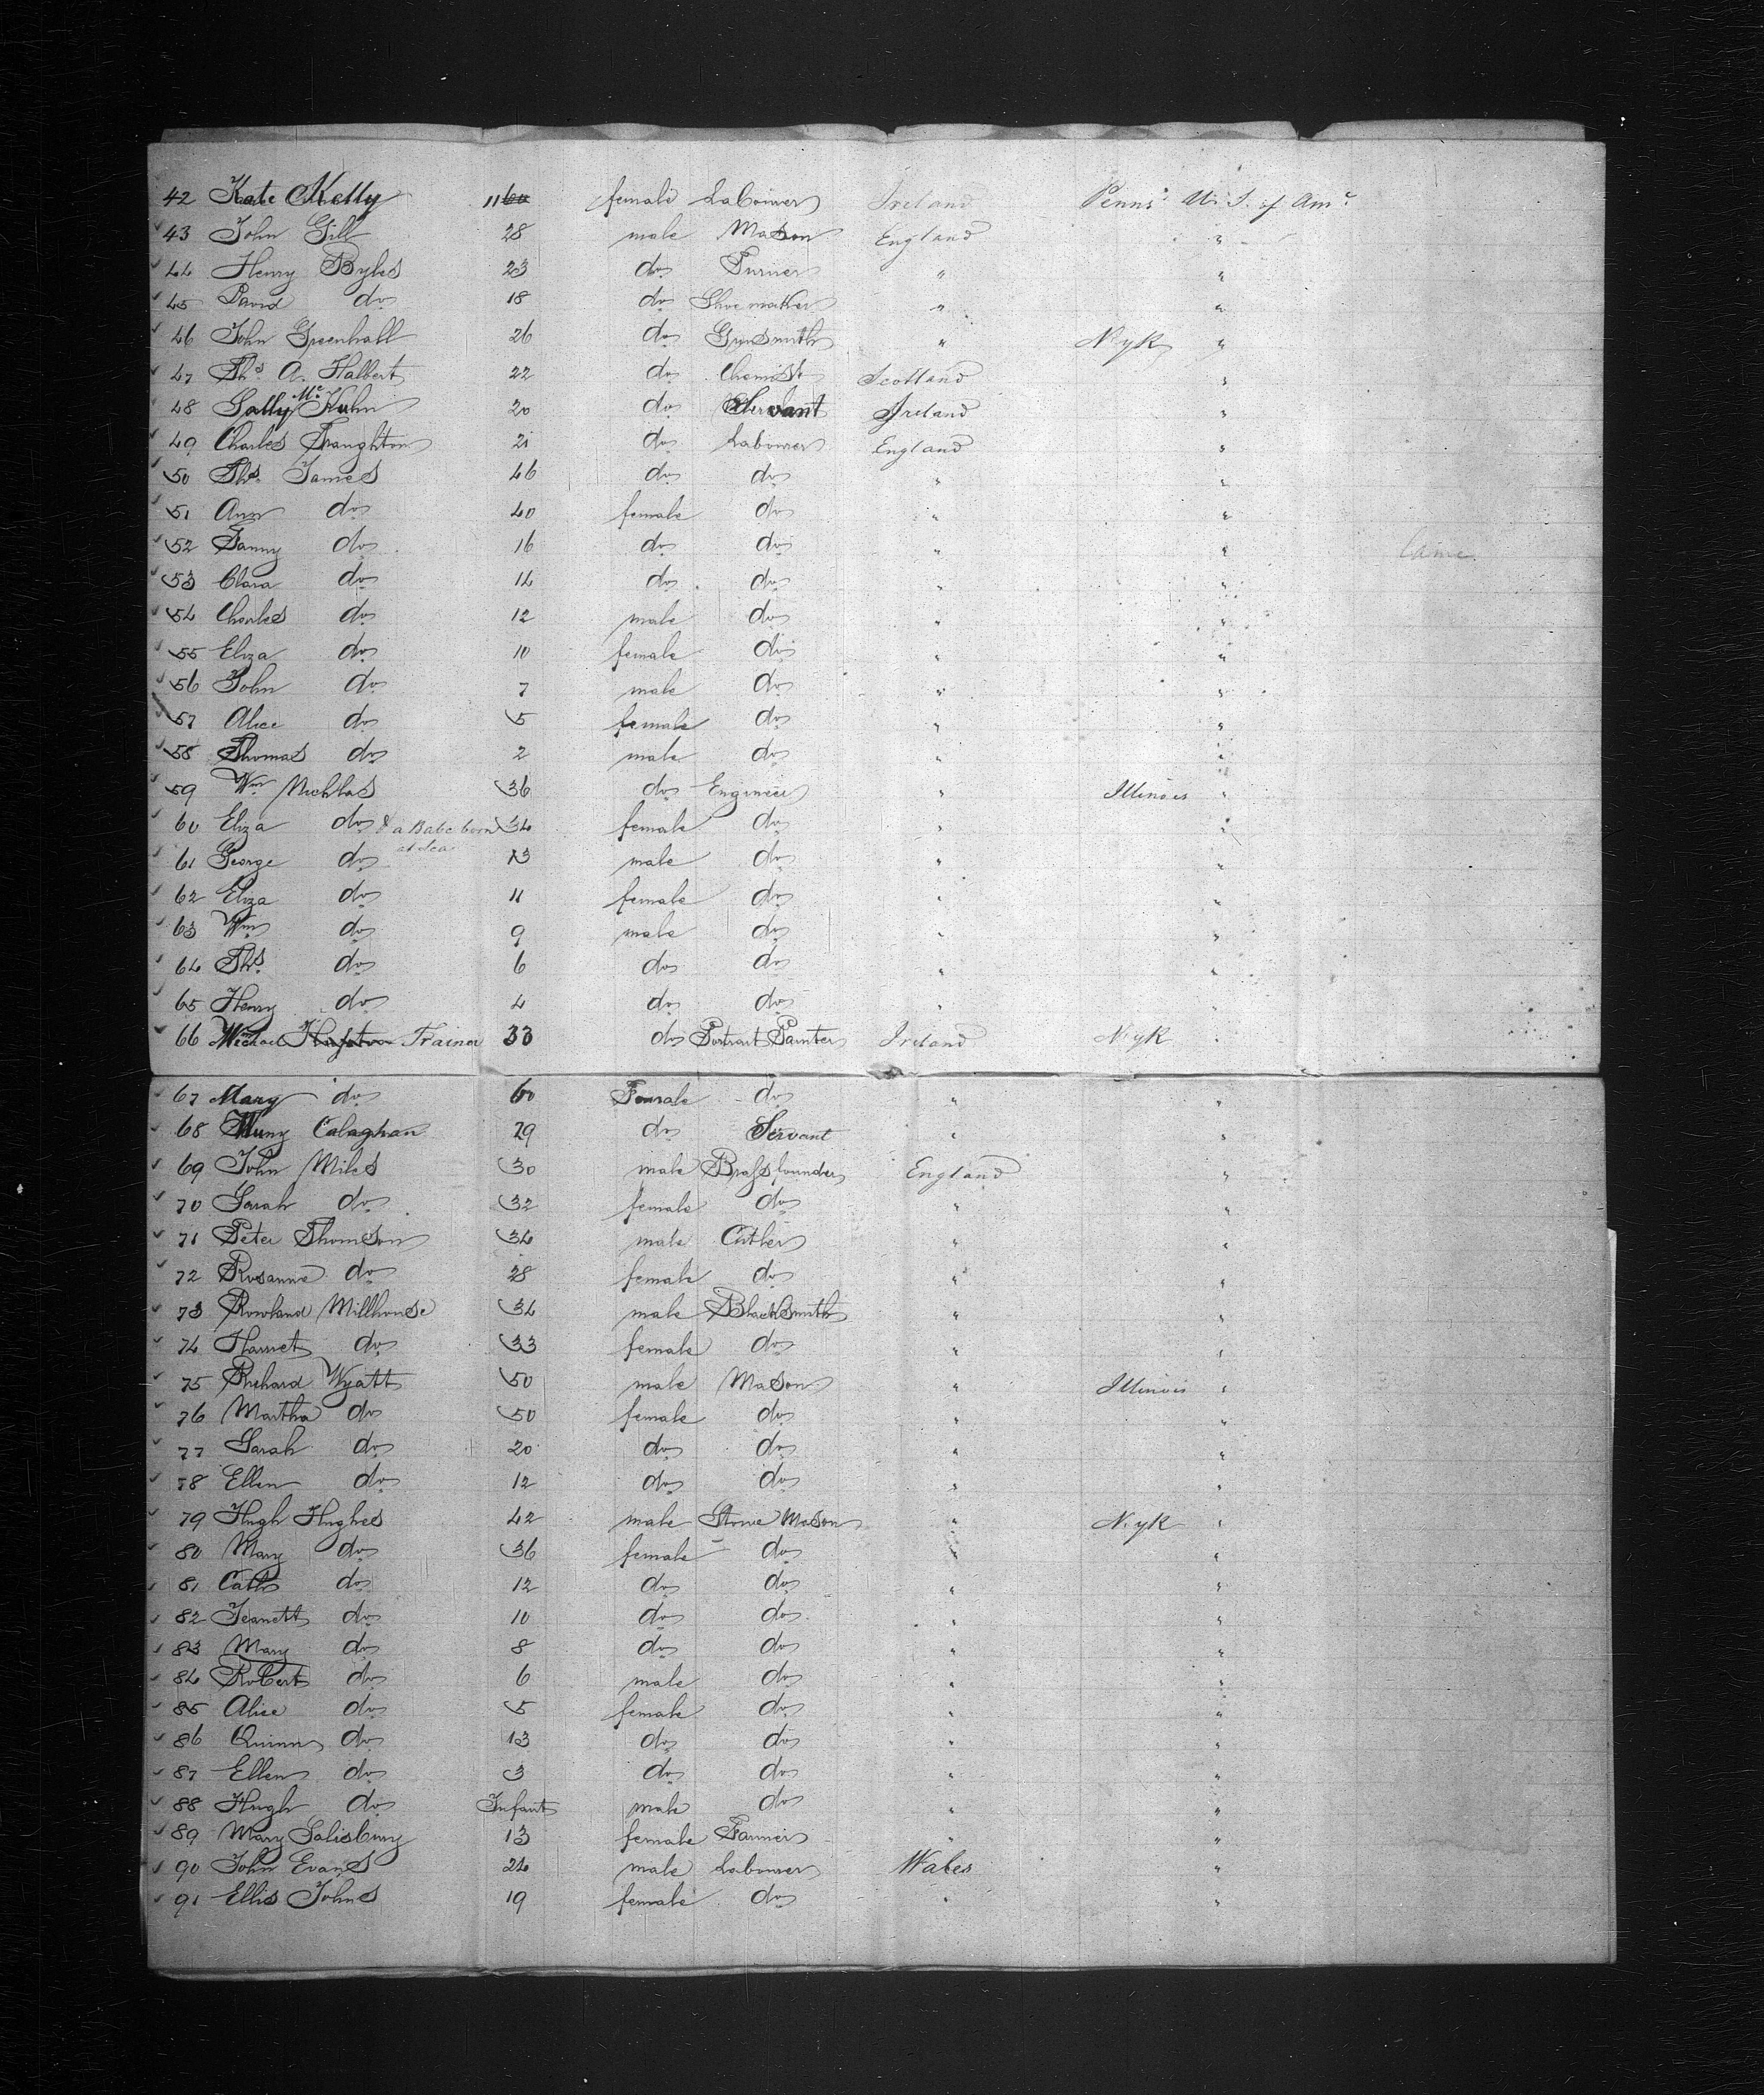 42 Kate Kelly 11 60 female Labourer Ireland Penns.a U. S. of Am.c
43 John Gill 28 male Mason England "
44 Henry Byles 23 do Turner " "
45 David do 18 do Shoemaker " "
46 John Greenhall 26 do Gunsmith " N. yk "
47 Ths. A. Halbert 22 do Chemist Scotland "
48 Sally Mc Kuhn 20 do Servant Ireland "
49 Charles Traughton 21 do Labourer England "
50 Ths. James 46 do do " "
51 Ann do 40 female do " "
52 Fanny do 16 do do " " Lame
53 Clara do 14 do do " "
54 Charles do 12 male do " "
55 Eliza do 10 female do " "
56 John do 7 male do " "
57 Alice do 5 female do " "
58 Thomas do 2 male do " "
59 Wm Nichlas 36 do Engineer " Illinois "
60 Eliza do & a Babe born at sea 34 female do " "
61 George do 13 male do " "
62 Eliza do 11 female do " "
63 Wm do 9 male do " "
64 Ths. do 6 do do " "
65 Henry do 4 do do " "
66 Michael Trainer 33 do Portrait Painter Ireland N. yk "
67 Mary do 60 Female do " "
68 Calaghan 29 do Servant " "
69 John Miles 30 male Brassfounder England "
70 Sarah do 32 female do " "
71 Peter Thomson 34 male Cutler " "
72 Rosanna do 28 female do " "
73 Rowland Millhouse 34 male BlackSmith " "
74 Harriet do 33 female do " "
75 Richard Wyatt 50 male Mason " Illinois "
76 Martha do 50 female do " "
77 Sarah do 20 do do " "
78 Ellen do 12 do do " "
79 Hugh Hughes 42 male Stone Mason " N. yk "
80 Mary do 36 female do " "
81 Cath do 12 do do " "
82 Jeanett do 10 do do " "
83 Mary do 8 do do " "
84 Robert do 6 male do " "
85 Alice do 5 female do " "
86 Quinn do 13 do do " "
87 Ellen do 3 do do " "
88 Hugh do Infant male do " "
89 Mary Salisbury 13 female Farmer " "
90 John Evans 24 male Labourer Wales "
91 Ellis Johns 19 female do " "